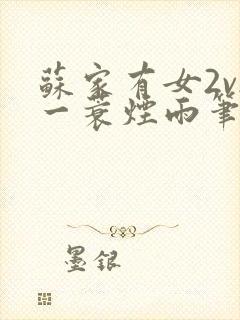 蘇家有女2v
一蓑煙雨筆
墨銀